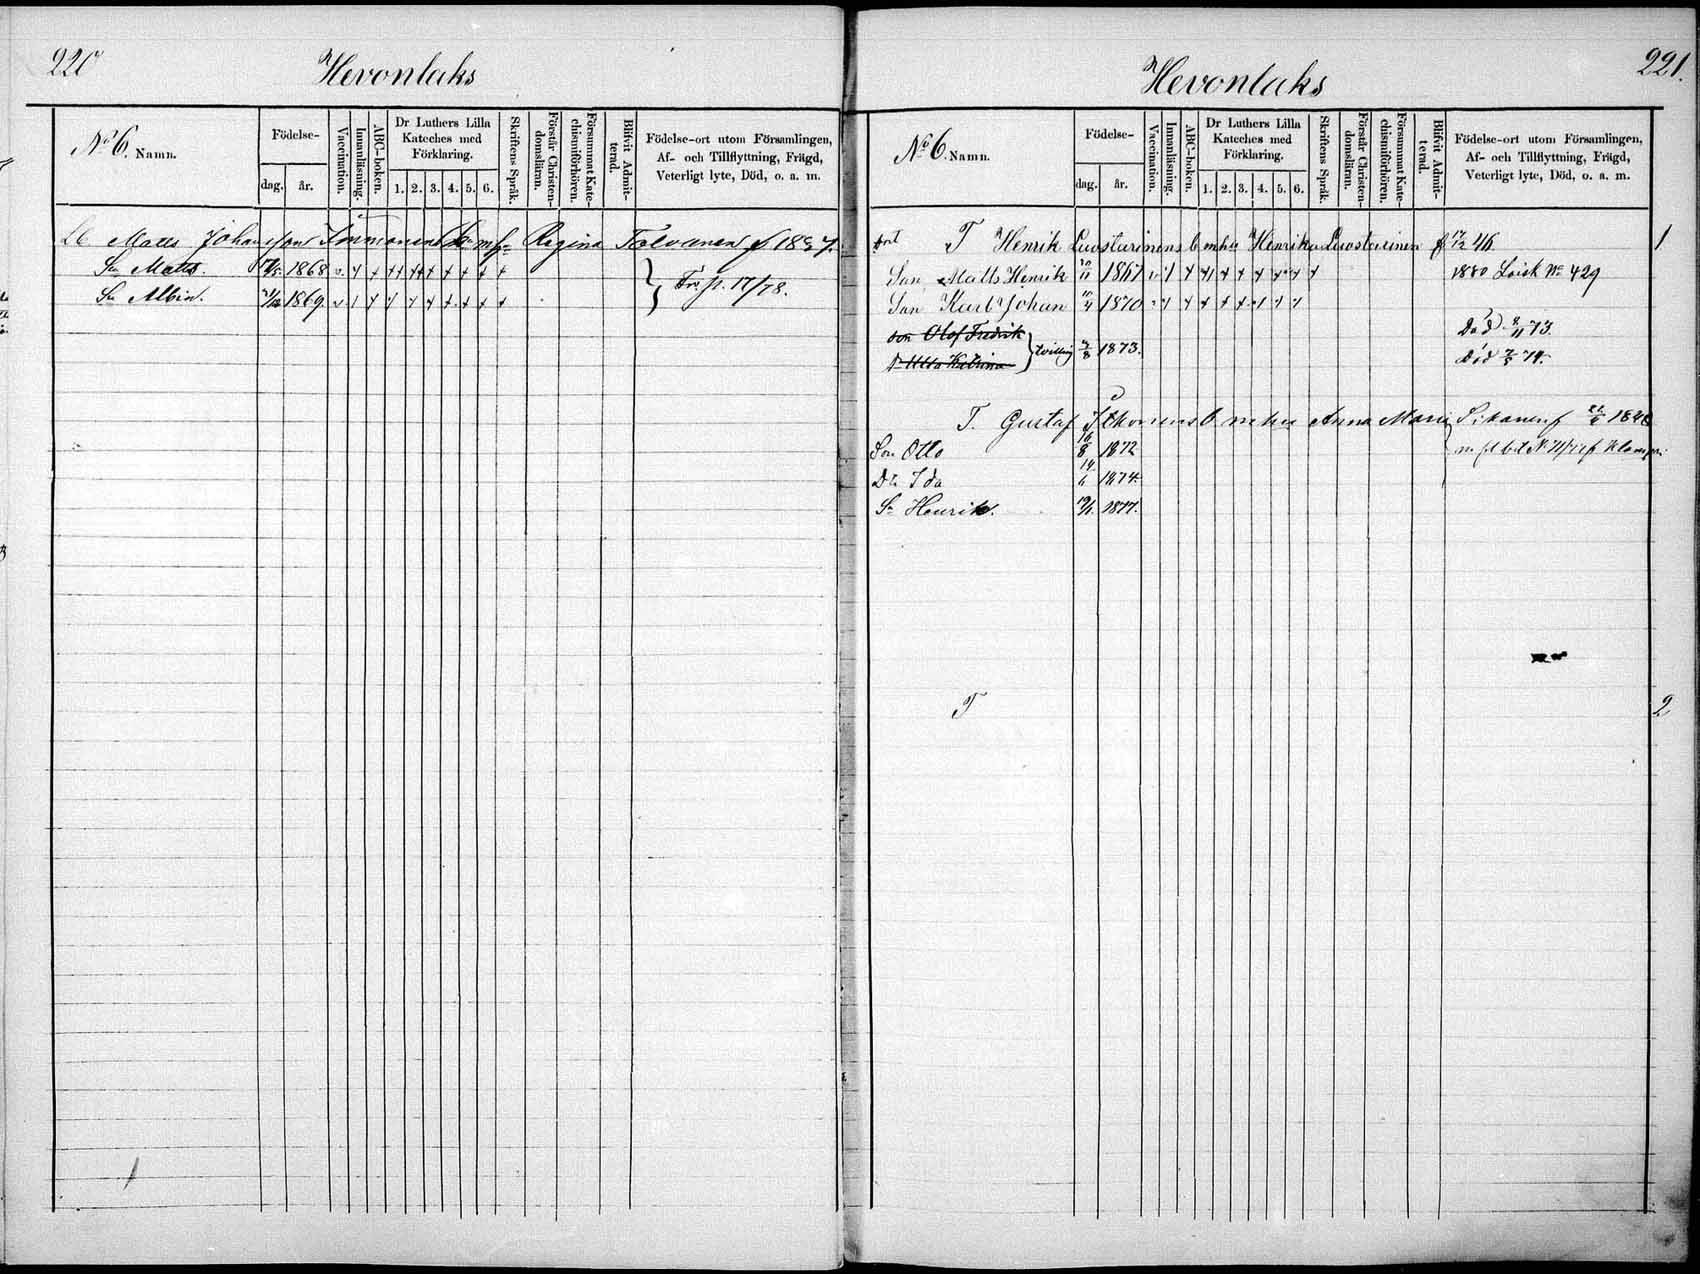 220
Hevonlaks
No 6. Namn.
Födelse-
dag.
år.
Vaccination.
Innanläsning.
ABC-boken.
Dr Luthers Lilla
Kateches med
Förklaring.
1. 2. 3. 4. 5. 6.
Skriftens Språk.
Förstår Christen-
domsläran.
Försummat Kate-
chismiförhören.
Blifvit Admit-
terad.
Födelse-ort utom Församlingen,
Af- och Tillflyttning, Frägd,
Veterligt lyte, Död, o. a. m.
Matts Johansson Immonens Regina Tolvanen f 18
Sn Matts. 1868
Sn Albin. 1869.
Fr. p. 17/78.
221.
Hevonlaks
No 6. Namn.
Födelse-
dag.
år.
Vaccination.
Innanläsning.
ABC-boken.
Dr Luthers Lilla
Kateches med
Förklaring.
1. 2. 3. 4. 5. 6.
Skriftens Språk.
Förstår Christen-
domsläran.
Försummat Kate-
chismiförhören.
Blifvit Admit-
terad.
Födelse-ort utom Församlingen,
Af- och Tillflyttning, Frägd,
Veterligt lyte, Död, o. a. m.
T Henrik Luostarinens Henrika Luostarinen f 17/12 46 1
Son Matts Henrik 1867 1880 Loisk No 429
Son Karl Johan 1870
son Olof Fredrik Död 8/11 73.
Katrina tvilling 1873. Död 74.
T. Gustaf Anna Maria
Son Otto 16/8 1872
Dr Ida 14/6 1874.
Sn Henrik. 1877.
T 2